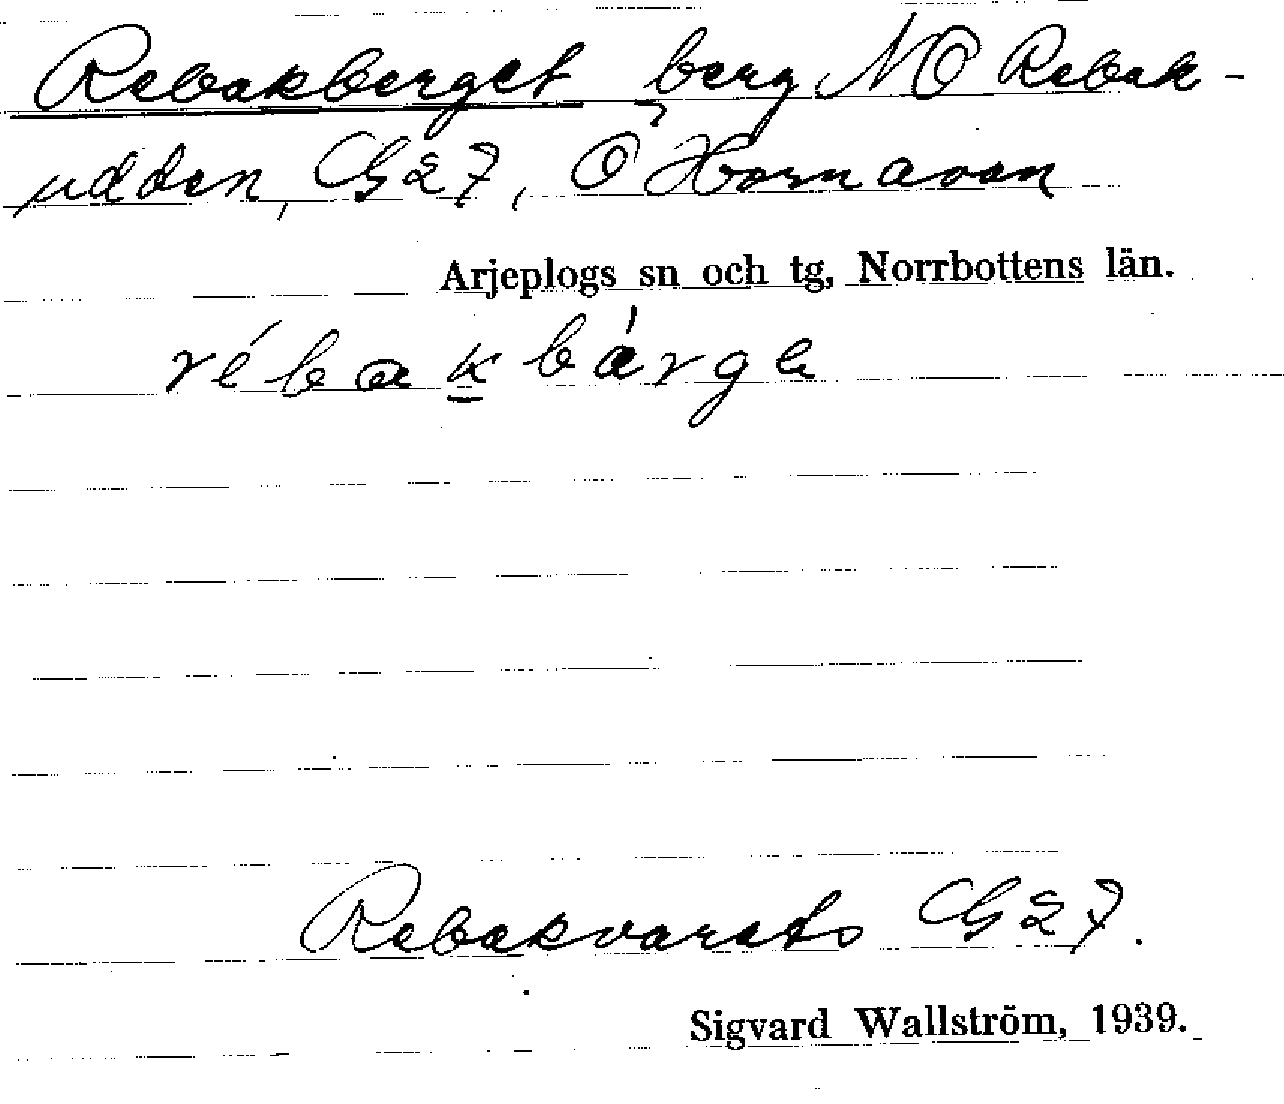 Rebakberget, berg NO Rebak-
udden, G27, Ö Hornavan
Arjeplogs sn och tg, Norrbottens län.
rébakbárge
Rebakvarats G27.
Sigvard Wallström, 1939.